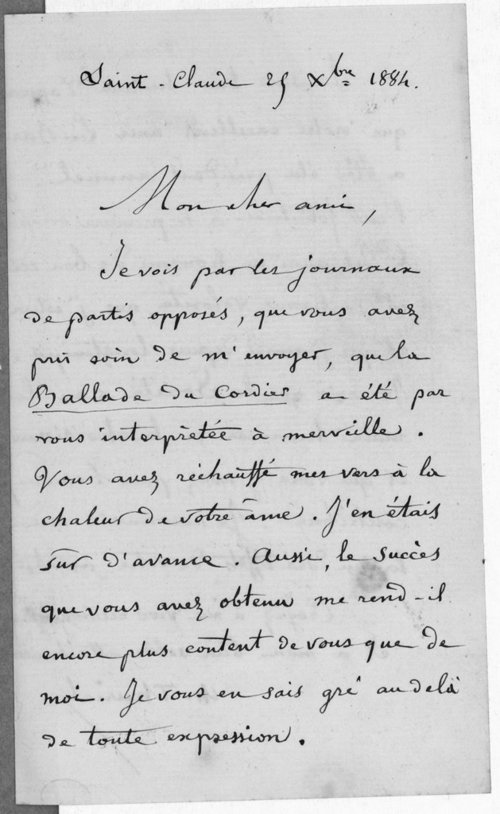 Saint-Claude 25 Xbre 1884.
Mon cher ami,
Je vois par les journaux
de partis opposés, que vous avez
pris soin de m'envoyer, que la
Ballade du Cordier a été par
vous interprêtée à merveille.
Vous avez réchauffé mes vers à la
chaleur de votre âme. J'en étais
sûr d'avance. Aussi, le succès
que vous avez obtenu me rend-il
encore plus content de vous que de
moi. Je vous en sais gré au delà
de toute expression.